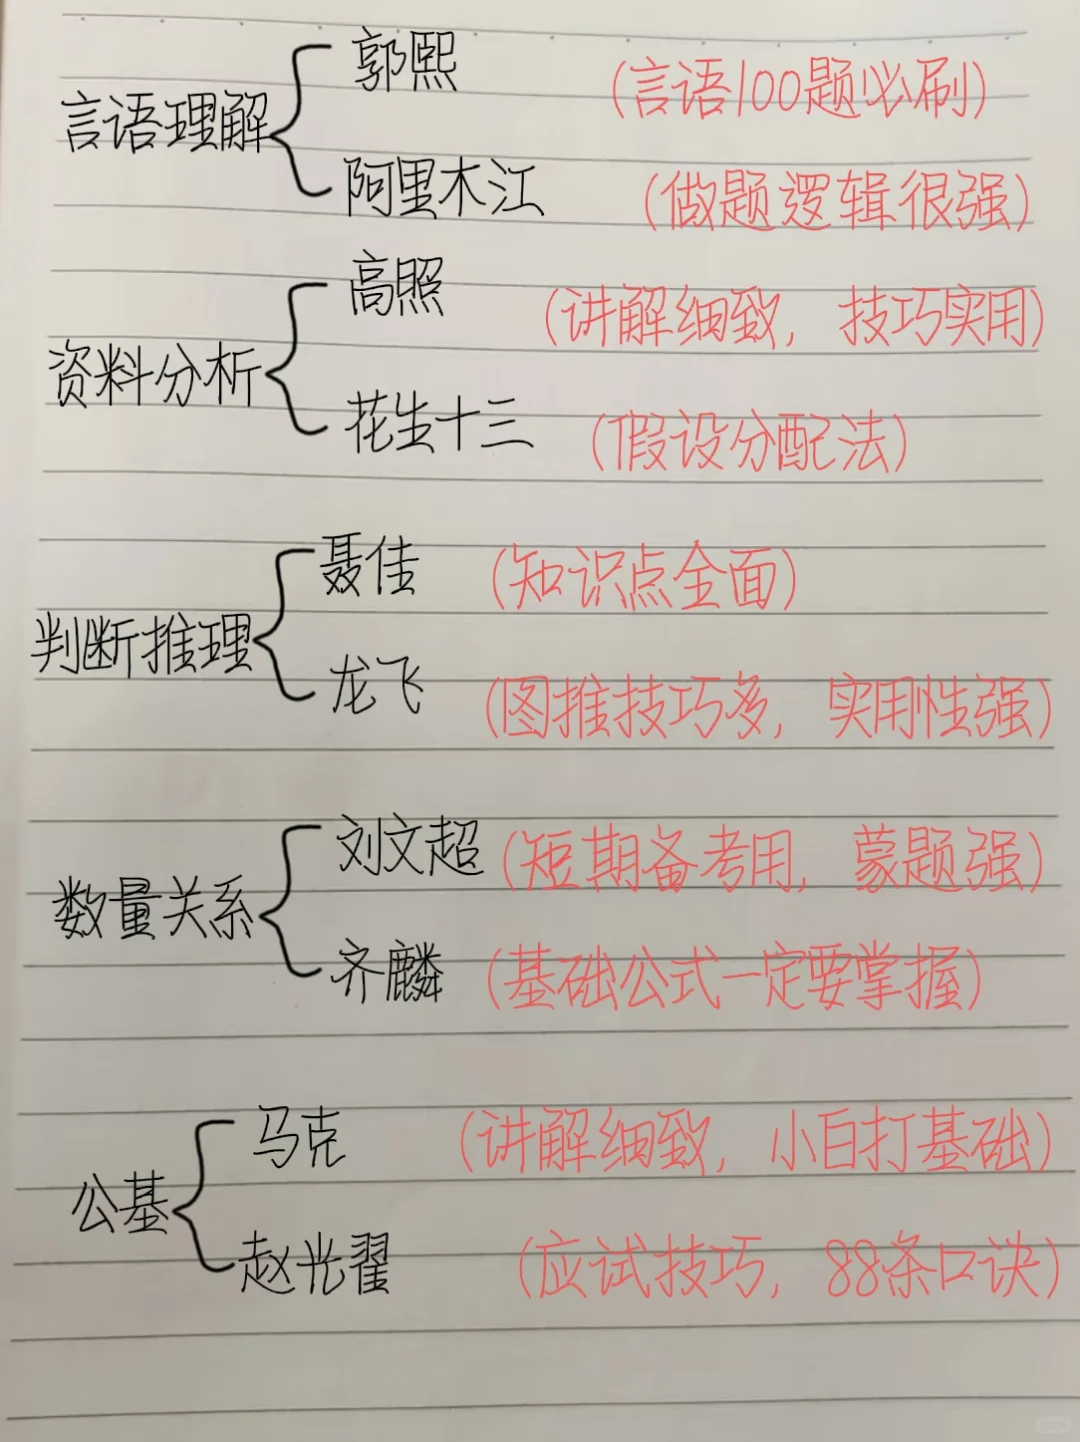 郭熙 (言语100题必刷)
言语理解
阿里木江 (做题逻辑很强)
高照 (讲解细致，技巧实用)
资料分析
花生十三 (假设分配法)
聂佳 (知识点全面)
判断推理
龙飞 (图推技巧多，实用性强)
刘文超 (短期备考用，蒙题强)
数量关系
齐麟 (基础公式一定要掌握)
马克 (讲解细致，小白打基础)
公基
赵光翟 (应试技巧，88条口诀)